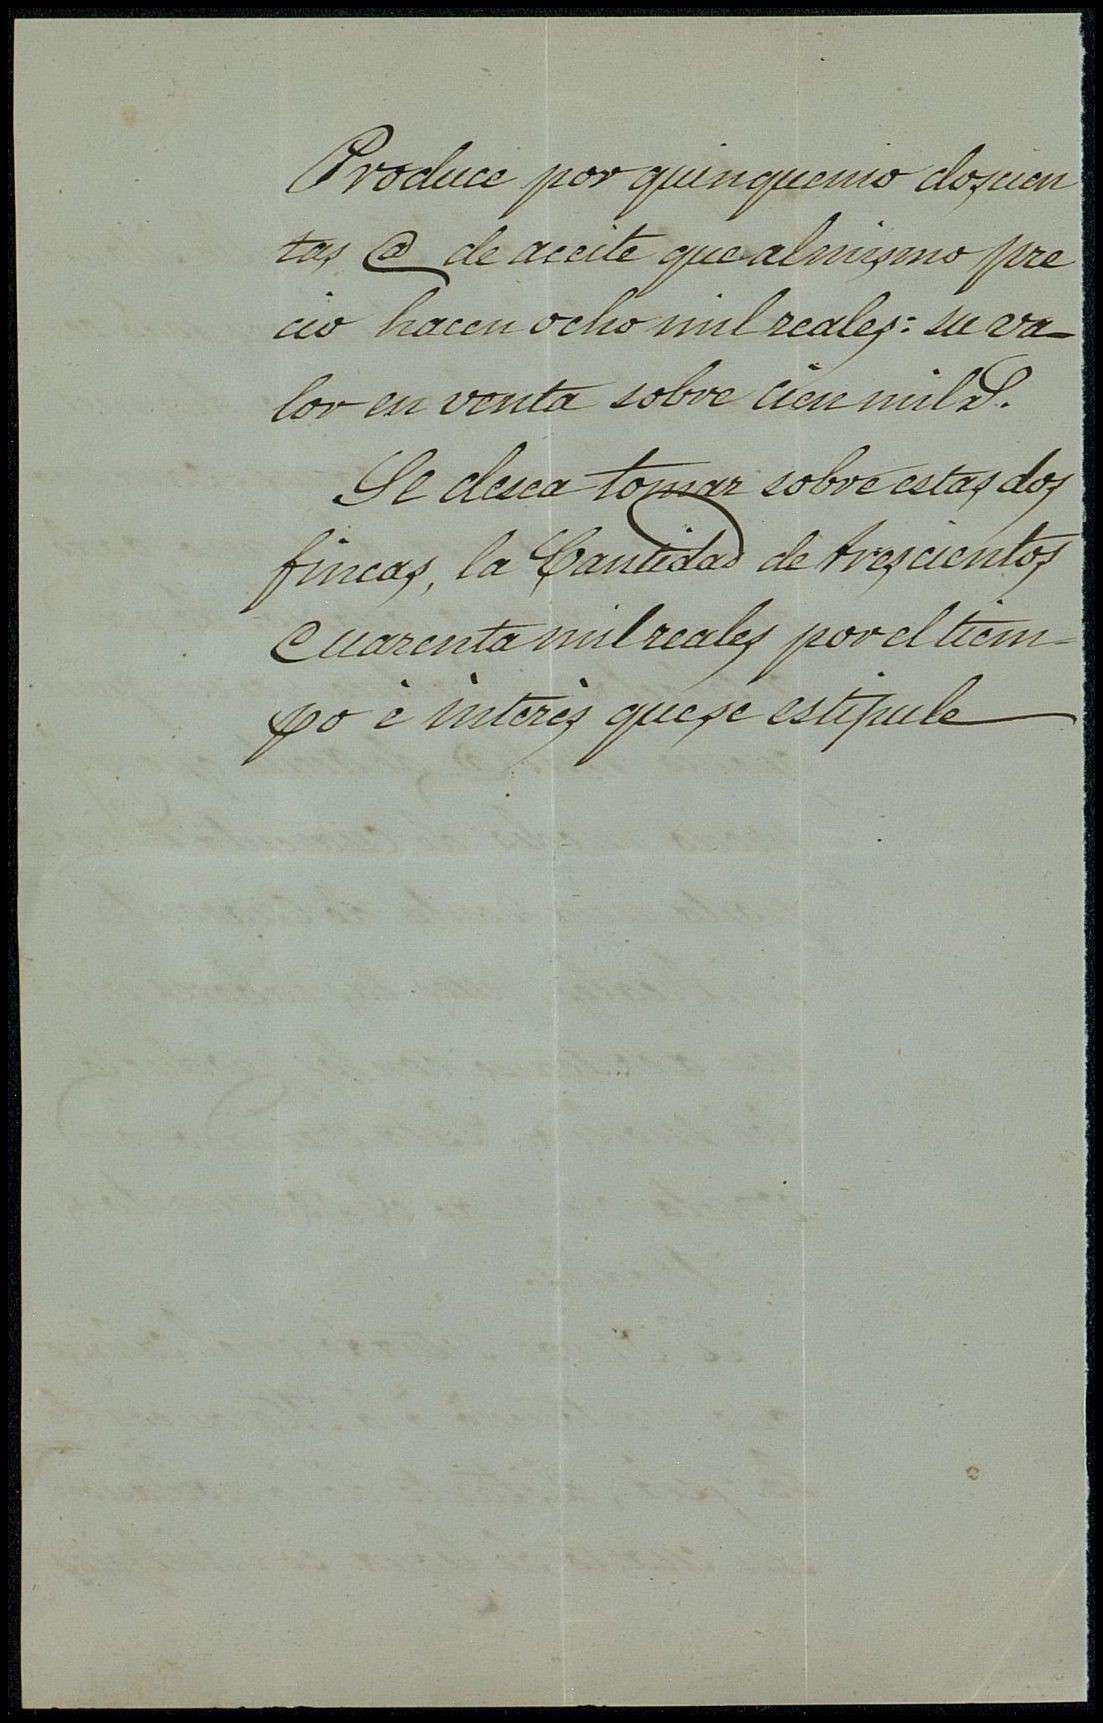 Produce por quinquenio doscien
tas @ de aceite que al mismo pre
cio hacen ocho mil reales: su va-
lor en venta sobre cien mil
Se desea tomar sobre estas dos
fincas, la Cantidad de trescientos
Cuarenta mil reales por el tiem-
po è interès que se estipule